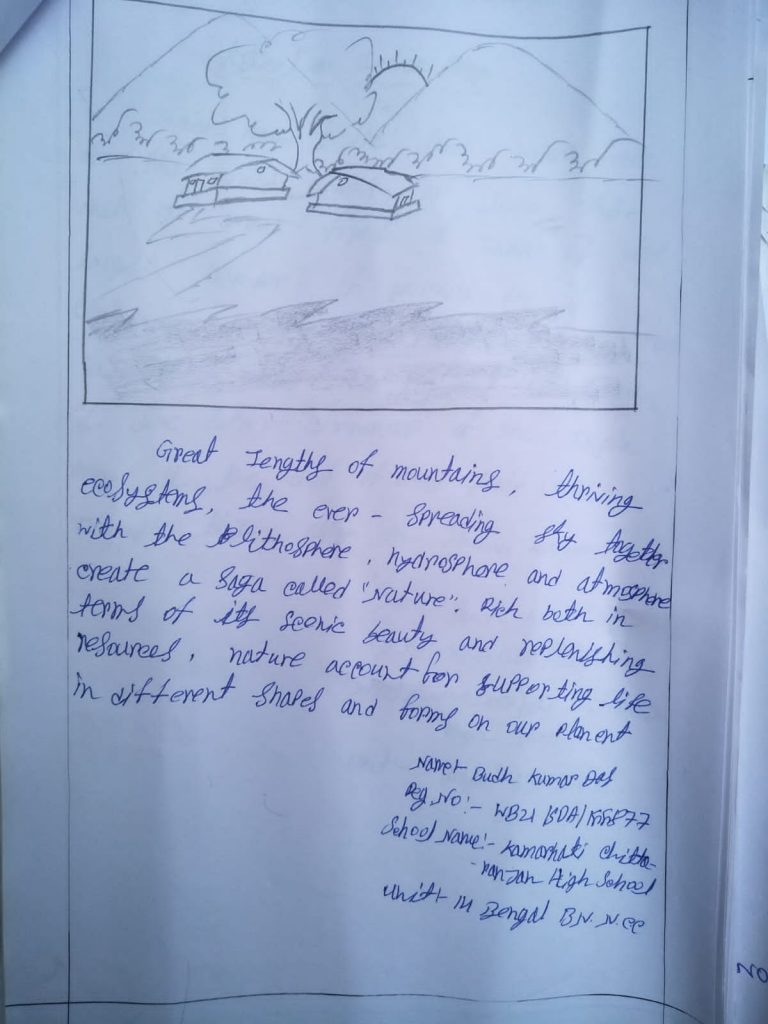 Great Lengths of mountains, thriving
ecosystems, the ever - spreading sky together
with the lithosphere, hydrosphere and atmosphere
create a saga called "Nature". Rich both in
terms of its scenic beauty and replenishing
resources, nature account for supporting life
in different shapes and forms on our planent
Name:- Budh Kumar Das
Reg. No:- WB21
School Name:- Kamarhati Chitta-
- ranjan High School
Unit:- Bengal BN. N.CC
NO